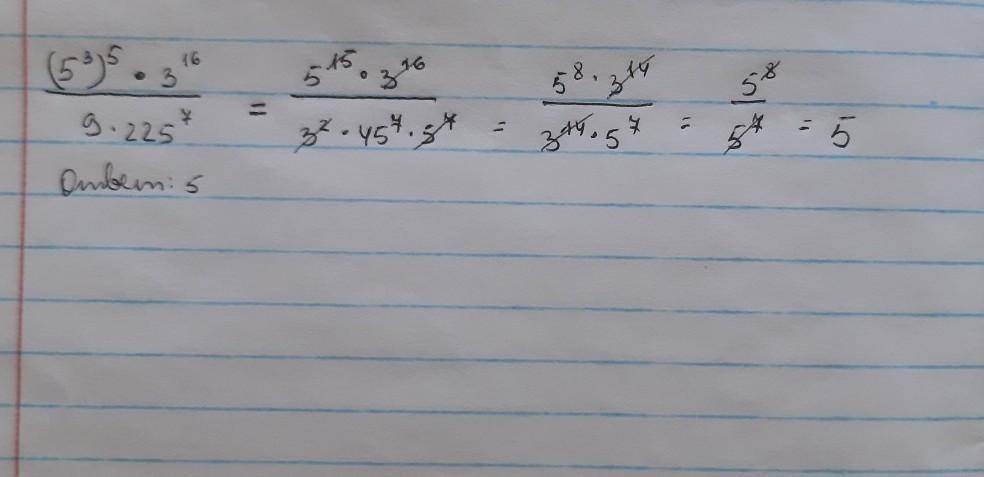 (5³)⁵ · 3¹⁶ / 9 · 225⁷ = 5¹⁵ · 3¹⁶ / 3² · 45⁷ · 5⁷ = 5⁸ · 3¹⁴ / 3¹⁴ · 5⁷ = 5⁸ / 5⁷ = 5
Ответ: 5